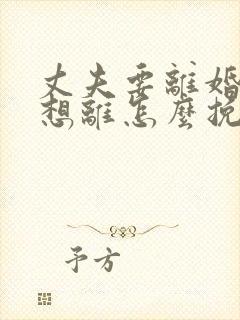 丈夫要離婚
想離怎麼挽
予方